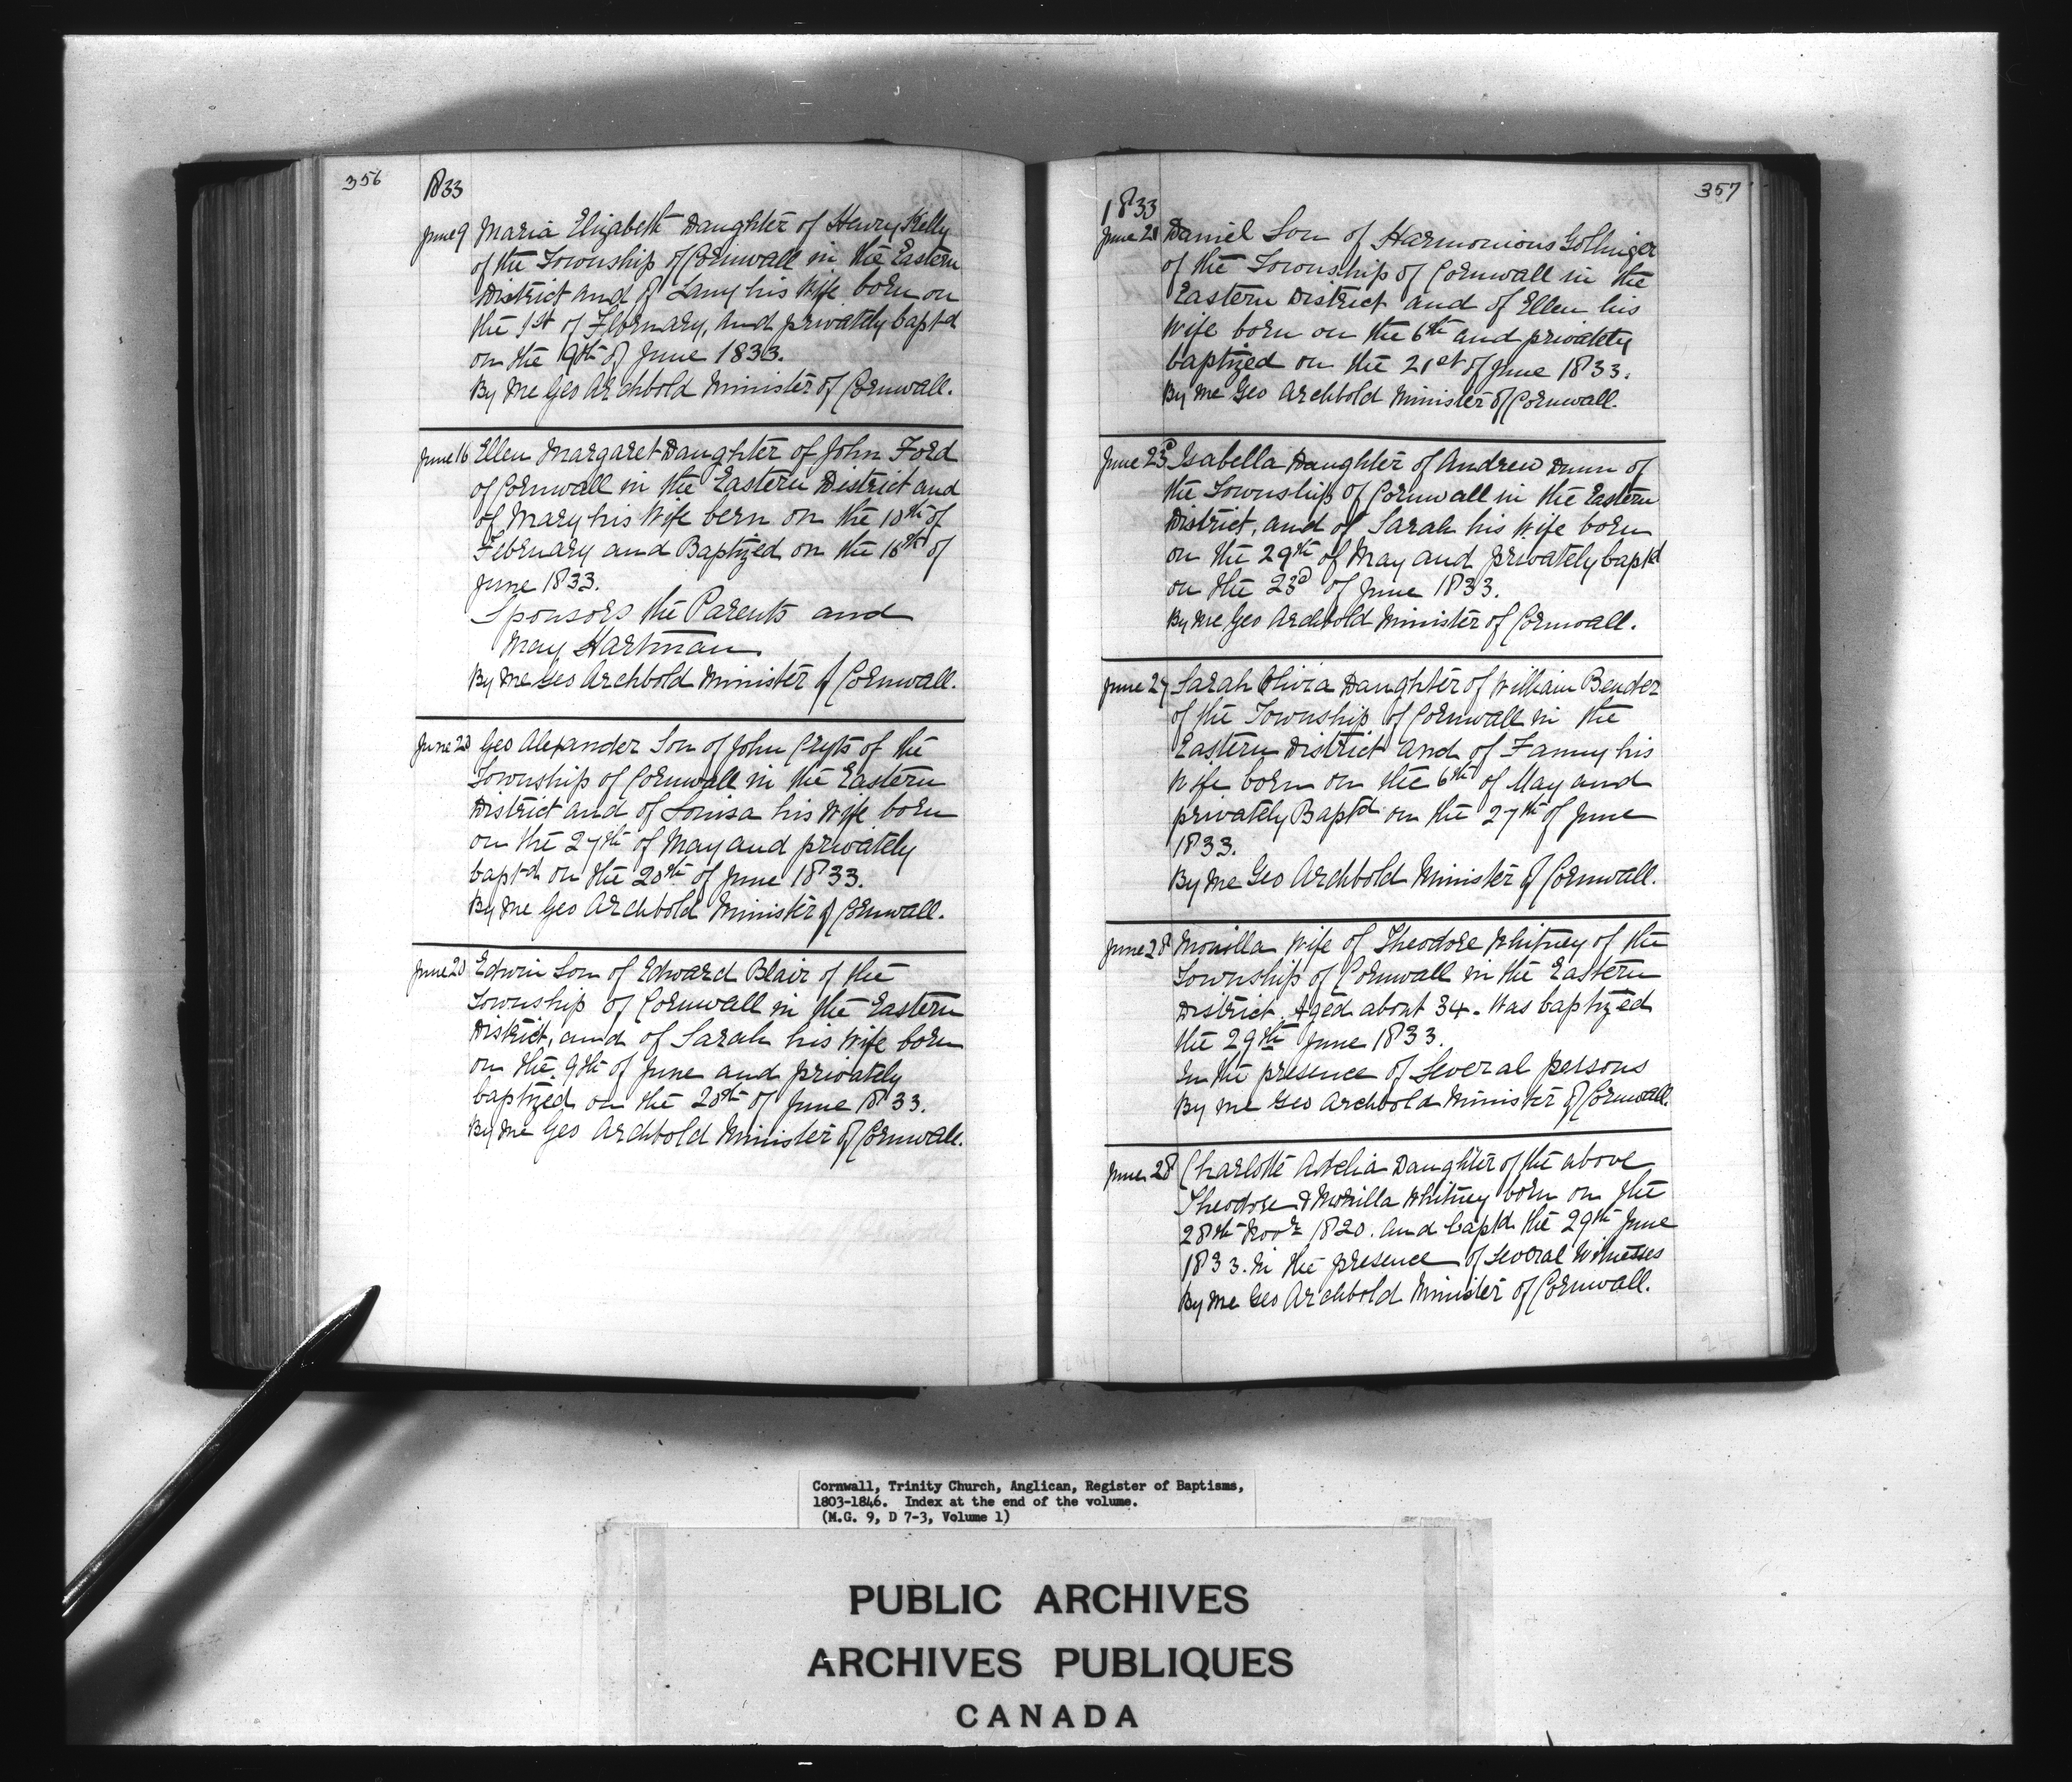 356
1833
June 9 Maria Elizabeth Daughter of Henry Kelly
of the Township of Cornwall in the Eastern
District and of Lany his Wife born on
the 1st of February, and privately bapt-d
on the 9th of June 1833.
By Me Geo Archbold Minister of Cornwall.
June 16 Ellen Margaret Daughter of John Ford
of Cornwall in the Eastern District and
of Mary his Wife born on the 10th of
February and Baptized on the 16th of
June 1833.
Sponsors the Parents and
May Hartman.
By Me Geo Archbold Minister of Cornwall.
June 20 Geo Alexander Son of John Crysts of the
Township of Cornwall in the Eastern
District and of Louisa his Wife born
on the 27th of May and privately
bapt-d on the 20th of June 1833.
By Me Geo Archbold Minister of Cornwall.
June 20 Edwin Son of Edward Blair of the
Township of Cornwall in the Eastern
District, and of Sarah his Wife born
on the 9th of June and privately
baptized on the 20th of June 1833.
By Me Geo Archbold Minister of Cornwall.
357
1833
June 21 Daniel Son of Harmonious Gollinger
of the Township of Cornwall in the
Eastern District and of Ellen his
Wife born on the 6th and privately
baptized on the 21st of June 1833.
By Me Geo Archbold Minister of Cornwall.
June 23d Isabella Daughter of Andrew Dunn of
the Township of Cornwall in the Eastern
District, and of Sarah his Wife born
on the 29th of May and privately bapt'd
on the 23d of June 1833.
By Me Geo Archbold Minister of Cornwall.
June 27 Sarah Olivia Daughter of William Bender
of the Township of Cornwall in the
Eastern District and of Fanny his
Wife born on the 6th of May and
privately Bapt'd on the 27th of June
1833.
By Me Geo Archbold Minister of Cornwall.
June 28 Monilla Wife of Theodore Whitney of the
Township of Cornwall in the Eastern
District. Aged about 34. Was baptized
the 29th June 1833.
In the presence of Several persons
By me Geo Archbold Minister of Cornwall.
June 28 Charlotte Adelia Daughter of the above
Theodore & Monilla Whitney born on the
28th Novr 1820. and bapt'd the 29th June
1833. In the presence of Several Witnesses
By Me Geo Archbold Minister of Cornwall.
Cornwall, Trinity Church, Anglican, Register of Baptisms,
1803-1846. Index at the end of the volume.
(M.G. 9, D 7-3, Volume 1)
PUBLIC ARCHIVES
ARCHIVES PUBLIQUES
CANADA